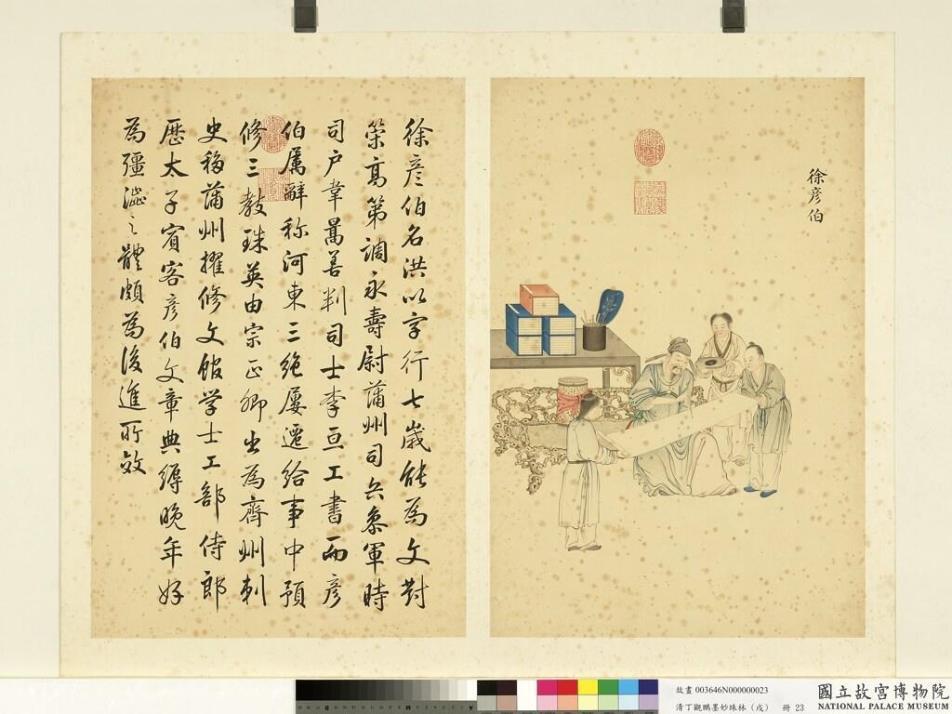 徐彦伯名洪以字行七歲能為文對
策高第調永壽尉蒲州司兵參軍時
司户韋暠善判司士李亘工書而彦
伯属辭称河東三絶屢遷給事中預
修三教珠英由宗正卿出為齊州刺
史移蒲州擢修文館学士工部侍郎
歴太子賓客彦伯文章典縟晚年好
為彊澁之體頗為後進所效
徐彦伯
故畫 003646N000000023
清丁觀鵬墨妙珠林（戌） 冊 23
國立故宮博物院
NATIONAL PALACE MUSEUM